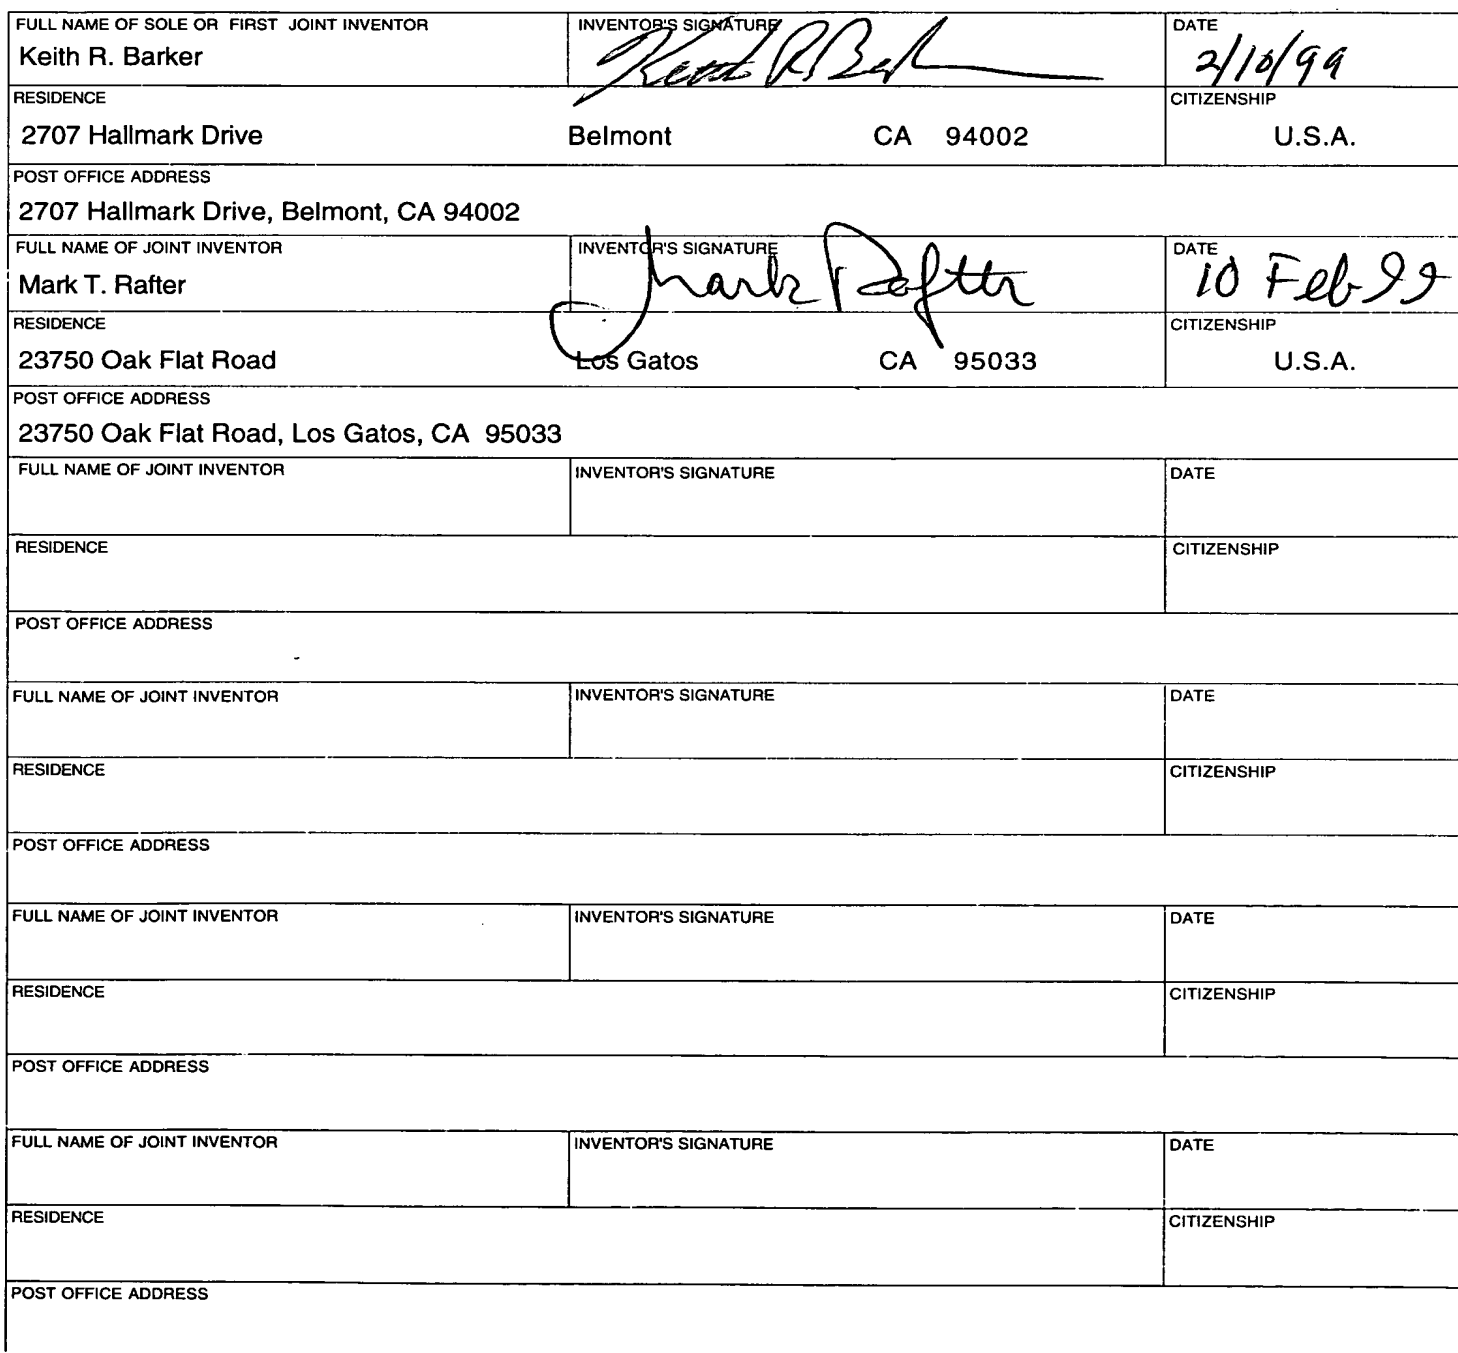 FULL NAME OF SOLE OR FIRST JOINT INVENTOR INVENTOR'S SIGNATURE DATE
Keith R. Barker Keith R Barker 2/10/99
RESIDENCE CITIZENSHIP
2707 Hallmark Drive Belmont CA 94002 U.S.A.
POST OFFICE ADDRESS
2707 Hallmark Drive, Belmont, CA 94002
FULL NAME OF JOINT INVENTOR INVENTOR'S SIGNATURE DATE
Mark T. Rafter Mark Rafter 10 Feb 99
RESIDENCE CITIZENSHIP
23750 Oak Flat Road Los Gatos CA 95033 U.S.A.
POST OFFICE ADDRESS
23750 Oak Flat Road, Los Gatos, CA 95033
FULL NAME OF JOINT INVENTOR INVENTOR'S SIGNATURE DATE
RESIDENCE CITIZENSHIP
POST OFFICE ADDRESS
FULL NAME OF JOINT INVENTOR INVENTOR'S SIGNATURE DATE
RESIDENCE CITIZENSHIP
POST OFFICE ADDRESS
FULL NAME OF JOINT INVENTOR INVENTOR'S SIGNATURE DATE
RESIDENCE CITIZENSHIP
POST OFFICE ADDRESS
FULL NAME OF JOINT INVENTOR INVENTOR'S SIGNATURE DATE
RESIDENCE CITIZENSHIP
POST OFFICE ADDRESS